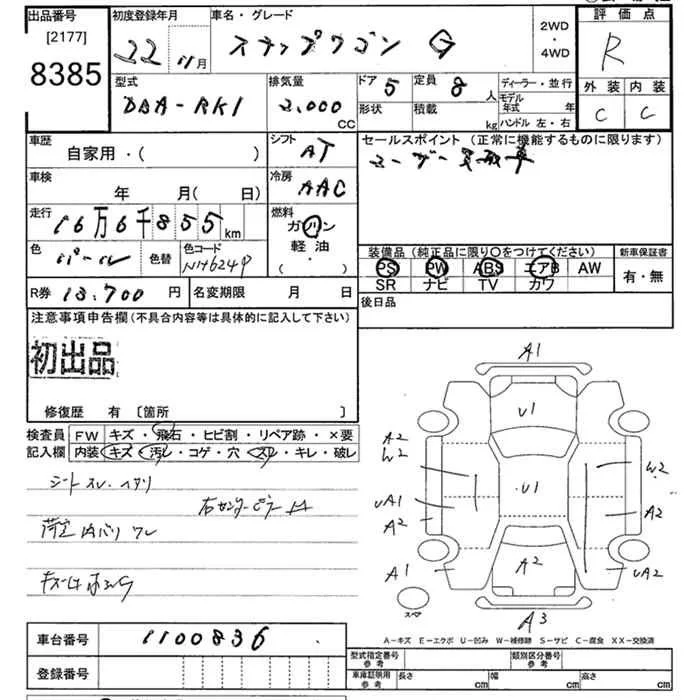 出品番号 初度登録年月 車名・グレード 2WD ・ 4WD 評価点
[2177] 22年 11月 ステップワゴン G R
8385 型式 排気量 ドア 5 定員 8人 ディーラー・並行 外装 内装
DBA-RK1 2,000 CC 形状 積載 kg モデル年式 年 ハンドル 左・右 C C
車歴 シフト セールスポイント (正常に機能するものに限ります)
自家用・( ) AT ユーザー買取車
車検 年 月(日) 冷房 AAC
走行 16万6千855km 燃料 ガソリン 軽油 ( ・ )
色 パール 色替 色コード NH624P 装備品 (純正品に限り〇をつけてください) 新車保証書
PS PW ABS エアB AW 有・無
R券 13,700円 名変期限 月 日 SR ナビ TV カワ
後日品
注意事項申告欄(不具合内容等は具体的に記入して下さい)
初出品
修復歴 有 〔箇所 〕
検査員 FW キズ・飛石・ヒビ割・リペア跡・×要
記入欄 内装 キズ・汚レ・コゲ・穴・スレ・キレ・破レ
シートスレ・ヘタリ
右センターピラー
荷室内バリワレ
A1
U1
A2
W2
U1
W2
UA1
A2
A2
A1
A2
UA2
スペア
A3
A-キズ E-エクボ U-凹み W-補修跡 S-サビ C-腐食 XX-交換済
車台番号 1100836
型式指定番号 参考 類別区分番号 参考
登録番号 車庫証明用 参考 長さ cm 幅 cm 高さ cm